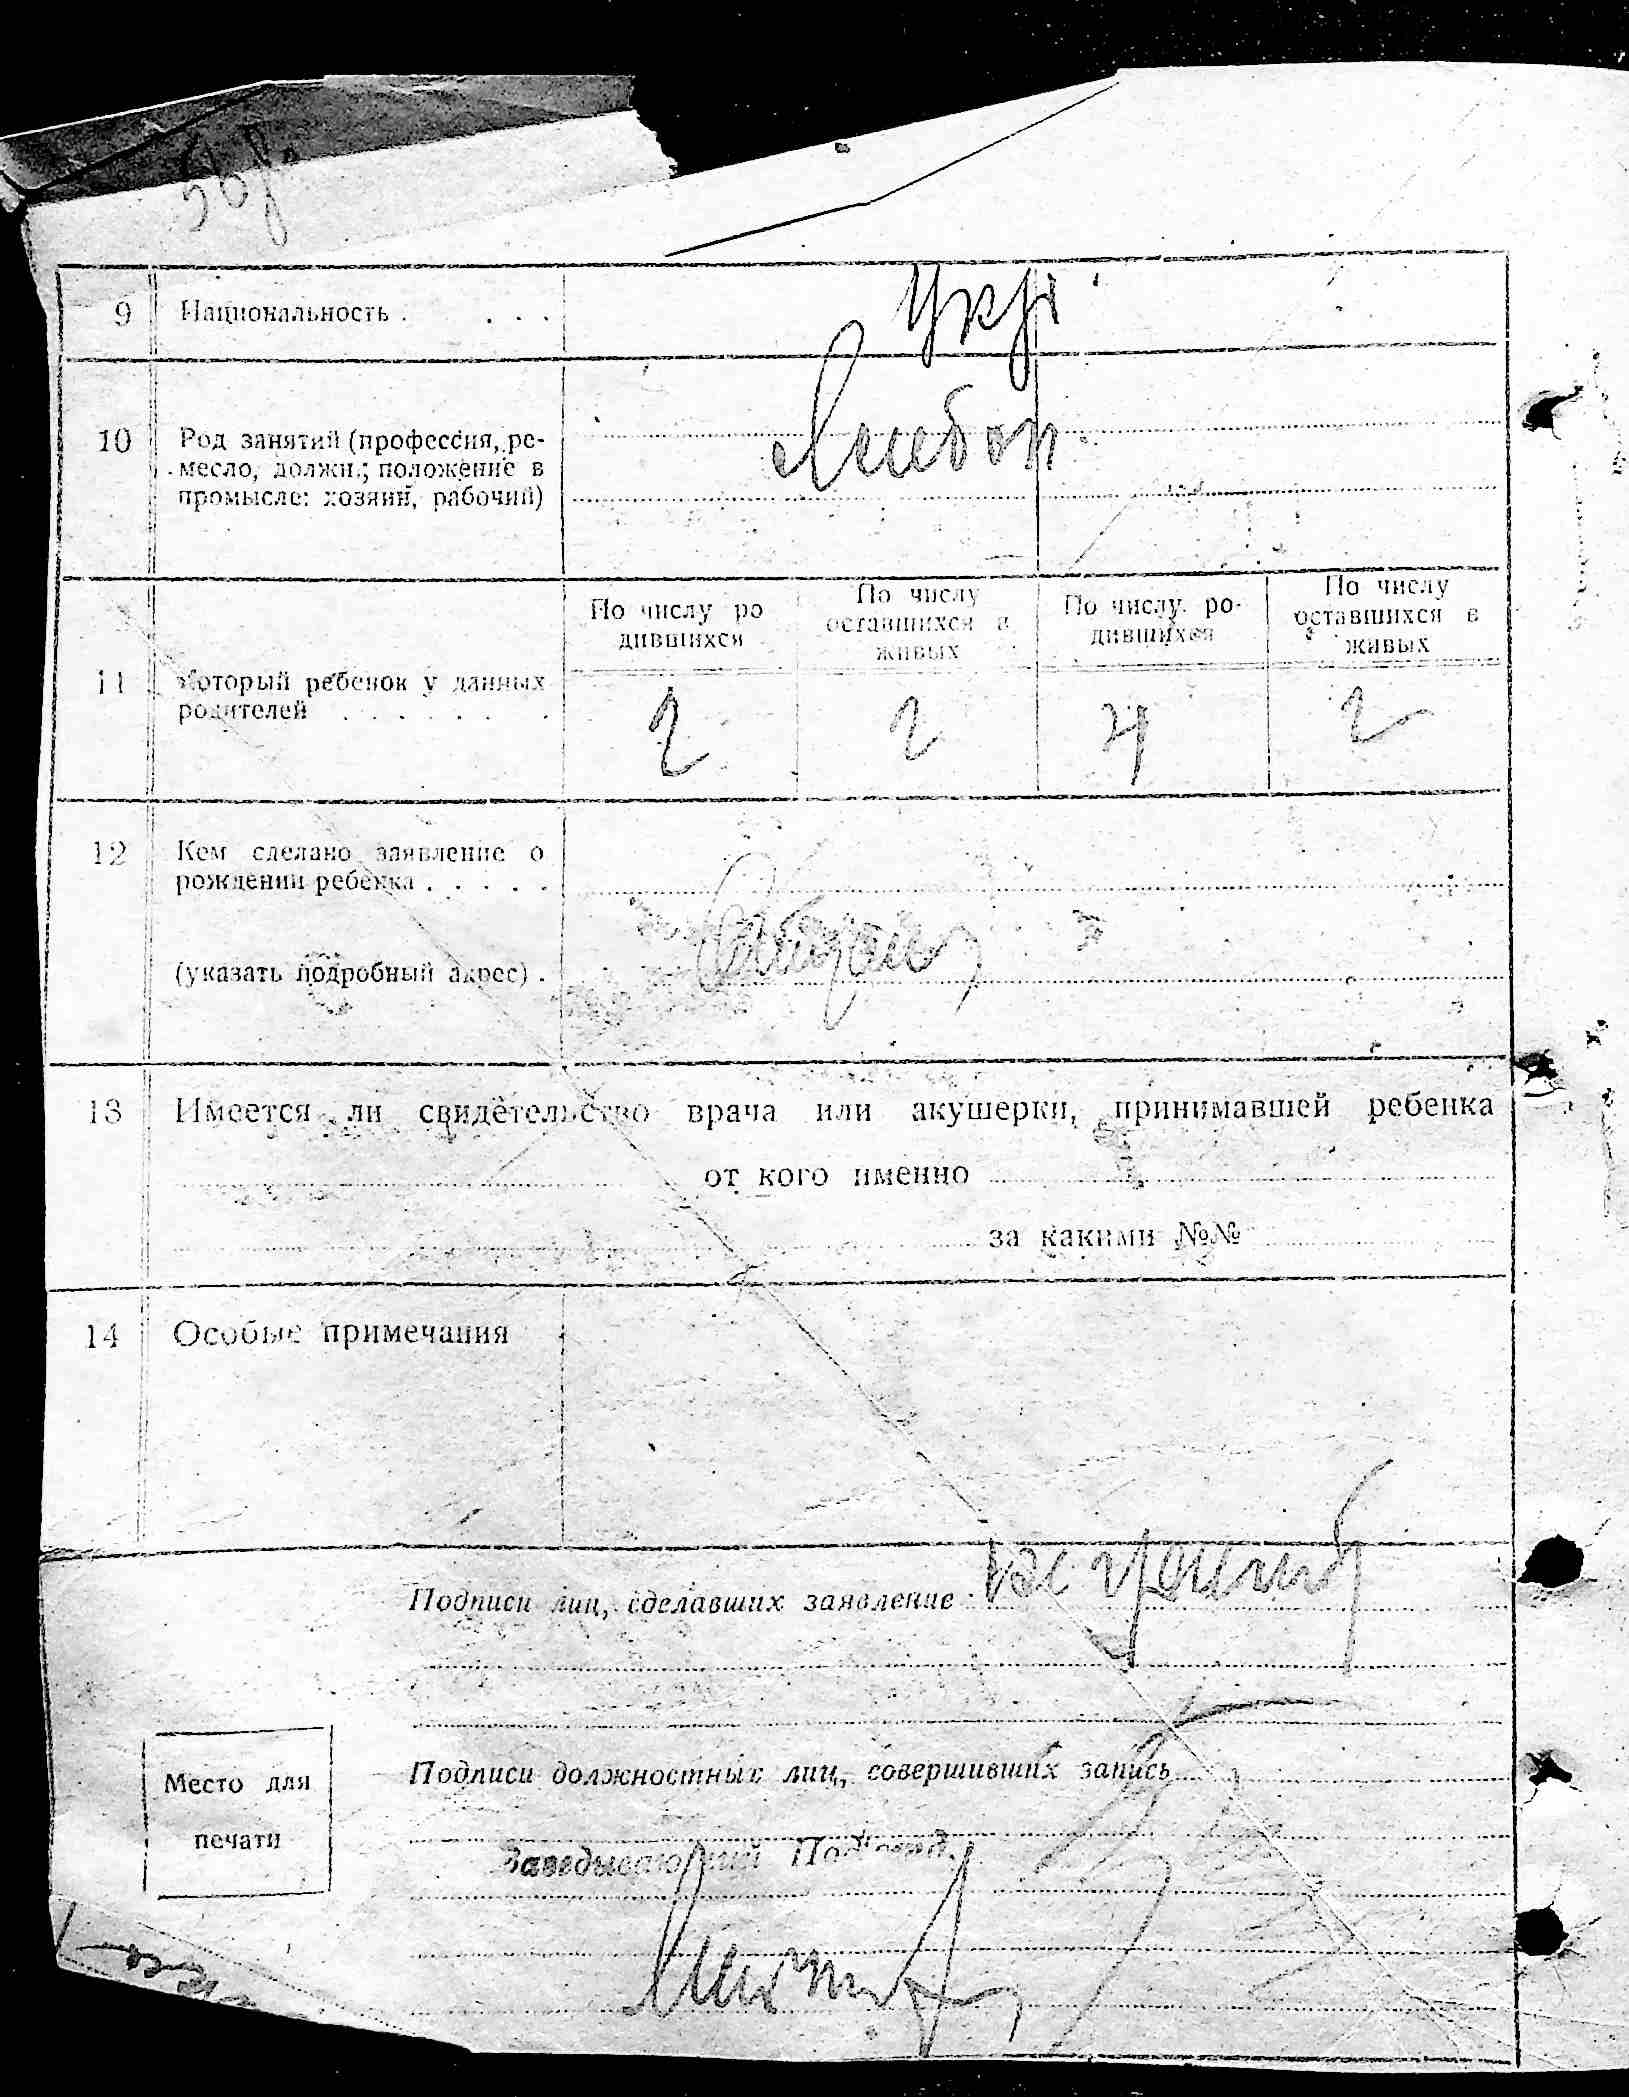 9 Национальность . . . . Укр.
10 Род занятий (профессия, ре-
месло, должн.; положение в
промысле: хозяин, рабочий)
Хлебоп.
По числу ро
дившихся
По числу
оставшихся в
живых
По числу ро-
дившихся
По числу
оставшихся в
живых
11 Который ребенок у данных
родителей . . . . . .
2 2 4 2
12 Кем сделано заявление о
рождении ребенка . . . . .
(указать подробный адрес) .
13 Имеется ли свидетельство врача или акушерки, принимавшей ребенка
от кого именно
за какими №№
14 Особые примечания
Подписи лиц, сделавших заявление
Подписи должностных лиц, совершивших запись
Место для
печати
Заведывающий